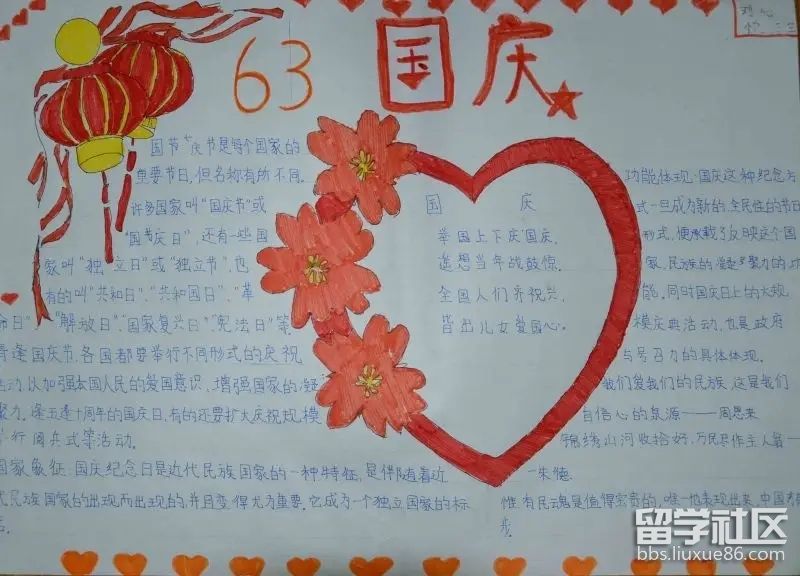 63 国庆
国节"庆节是每个国家的
重要节日,但名称有所不同。
许多国家叫"国庆节"或
"国节庆日",还有一些国
家叫"独立日"或"独立节",也
有的叫"共和日"、"共和国日"、"革
命日"、"解放日"、"国家复兴日"、"宪法日"等
逢国庆节,各国都要举行不同形式的庆祝
活动,以加强本国人民的爱国意识,增强国家的凝
聚力。逢五逢十周年的国庆日,有的还要扩大庆祝规模
行阅兵式等活动。
国家象征:国庆纪念日是近代民族国家的一种特征,是伴随着近
代民族国家的出现而出现的,并且变得尤为重要。它成为一个独立国家的标
国 庆
举国上下庆国庆,
遥想当年战鼓惊。
全国人们齐祝兴,
皆出儿女爱国心。
功能体现:国庆这种纪念方
式一旦成为新的、全民性的节日
形式,便承载了反映这个国
家、民族的凝聚力的功
能。同时国庆日上的大规
模庆典活动,也是政府
与号召力的具体体现。
我们爱我们的民族,这是我们
自信心的泉源——周恩来
锦绣山河收拾好,万民尽作主人翁—
—朱德
惟有民魂是值得宝贵的,唯一他表现出来,中国才有
步。
留学社区
bbs.liuxue86.com